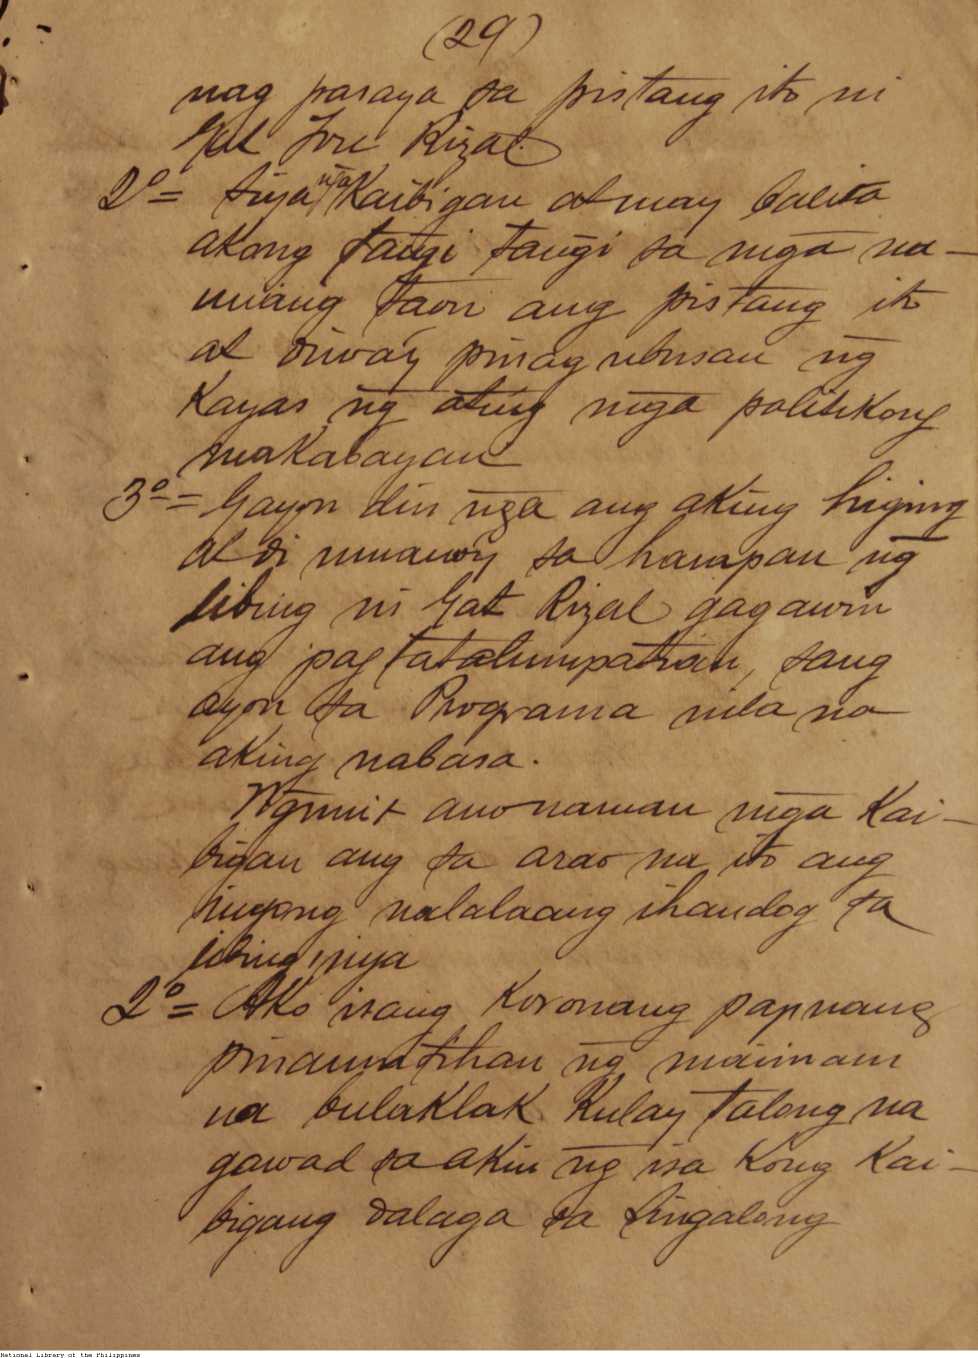 (29)
nag pasaya sa pistang ito ni
Gat Jose Rizal.
2º = Siya nga Kaibigan at may balita
akong tangi tangi sa mga na-
unang taon ang pistang ito
at diwa'y pinag ubusan ng̃
Kayas ng̃ ating mg̃a politikong
makabayan
3º = Gayon din ng̃a ang aking higing
at di umano'y sa harapan ng̃
libing ni Gat Rizal gagawin
ang pag tatalumpatian, sang
ayon sa Programa nila na
aking nabasa.
Ng̃unit ano naman mg̃a Kai-
bigan ang sa arao na ito ang
inyong nalalaang ihandog sa
libing niya
2º = Ako isang Koronang sapnang
pinamutihan ng̃ maiinam
na bulaklak Kulay talong na
gawad sa akin ng̃ isa Kong Kai-
bigang dalaga sa Singalong
National Library of the Philippines